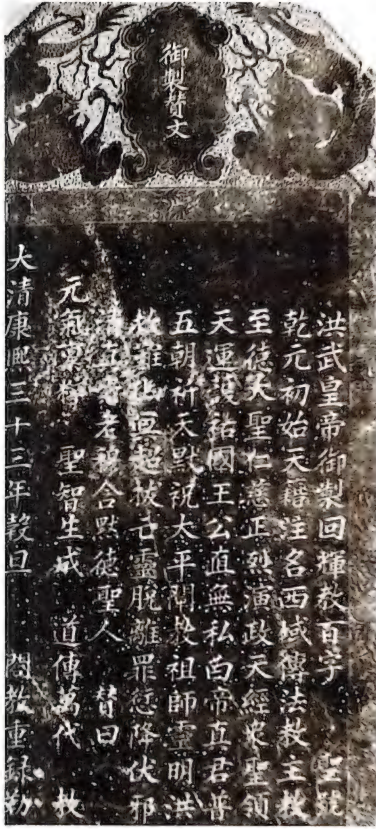 御製賛文
洪武皇帝御製回輝教百字 聖號
乾元初始天籍注名西域傳法教主教
至德大聖仁慈正烈演政天經衆聖領
天運護祐國王公直無私白帝真君普
五朝祈天默祝太平開教祖師靈明洪
救難 超拔亡靈脫離罪愆降伏邪
清真 老穆合默德聖人 賛曰
元氣 聖智生成 道傳萬代 教
大清康熙三十三年穀旦 闔教重録勒